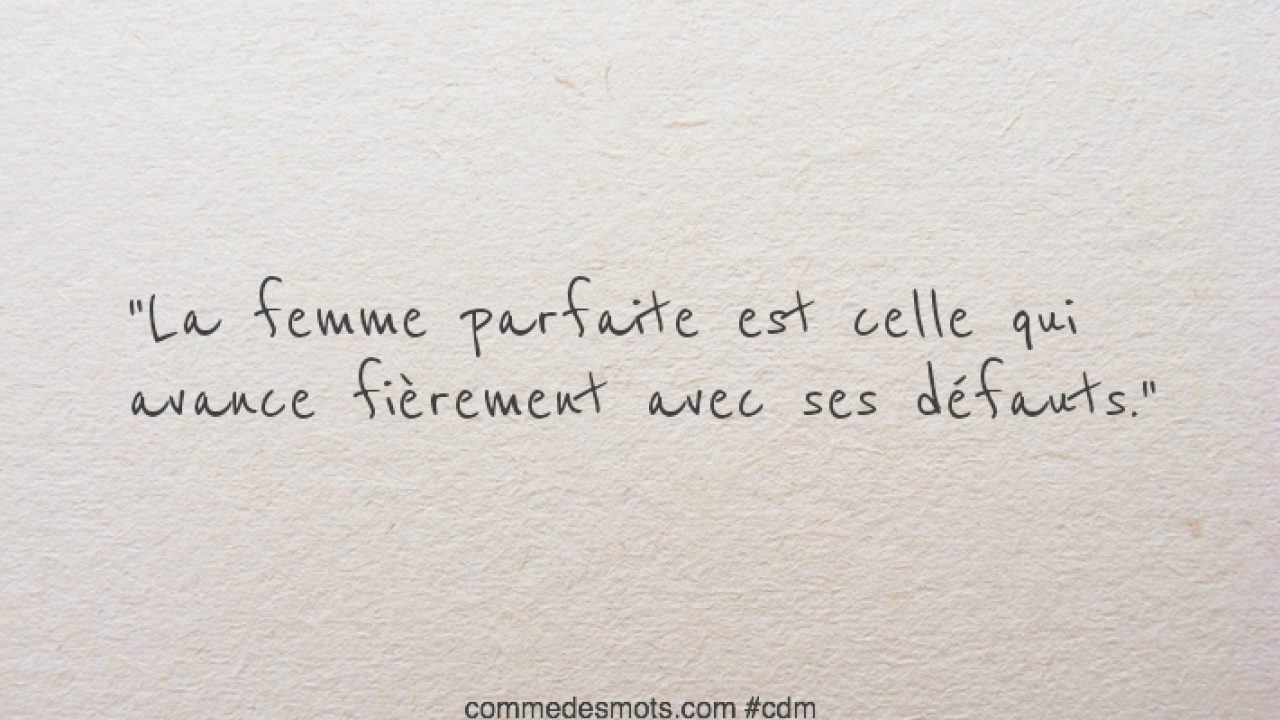 "La femme parfaite est celle qui
avance fièrement avec ses défauts."
commedesmots.com #cdm